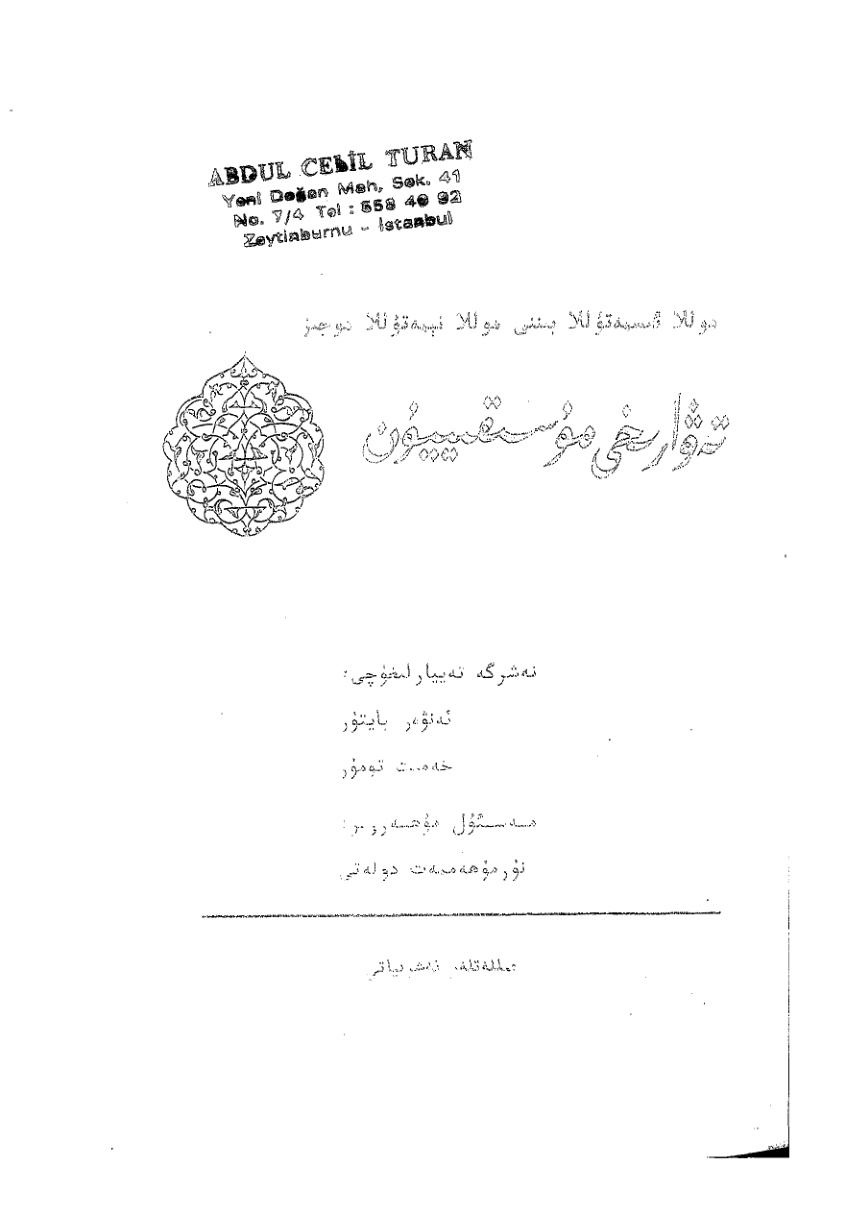 ABDUL CELİL TURAN
Yeni Doğan Mah, Sok. 41
No. 7/4 Tel : 558 40 92
Zeytinburnu - İstanbul
موللا ئىسمەتۇللا بىننى موللا نېمەتۇللا موجىز
تەۋارىخى مۇسىقىييۇن
نەشرگە تەييارلىغۇچى:
ئەنۋەر بايتۇر
خەمىت تۆمۈر
مەسئۇل مۇھەررىر:
نۇرمۇھەممەت دولەتى
مىللەتلەر نەشرىياتى